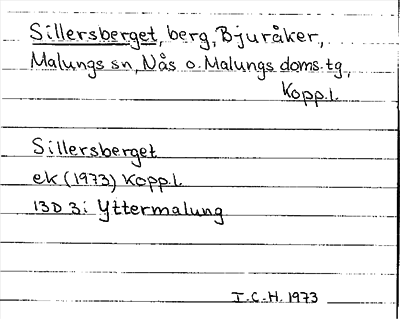 Sillersberget, berg, Bjuråker,
Malungs sn, Nås o. Malungs doms. tg,
Kopp. l.
Sillersberget
ek (1973) Kopp. l.
13D 3i Yttermalung
I.C-H. 1973